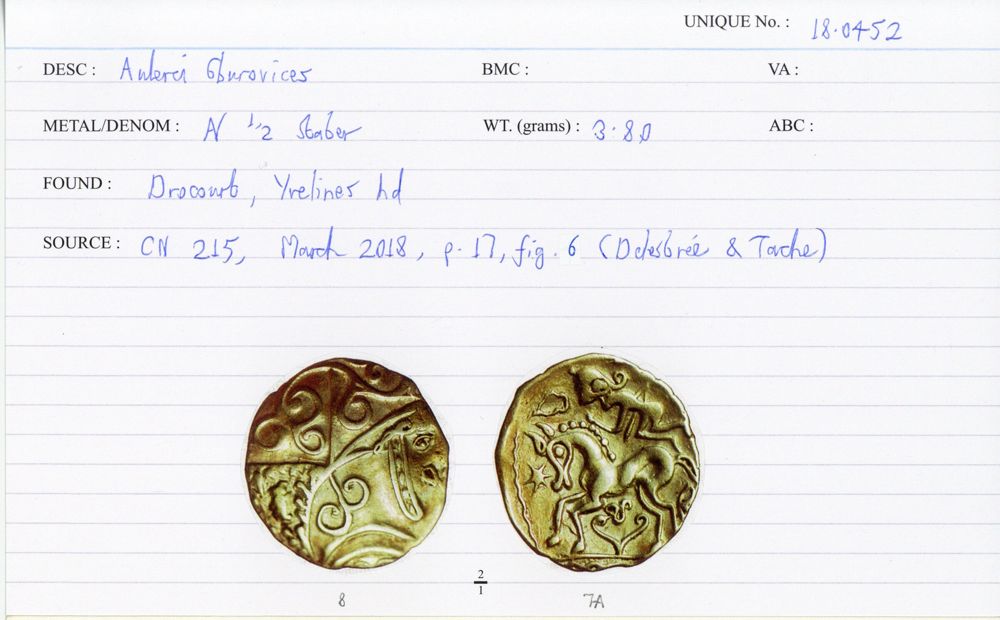 UNIQUE No. : 18.0452
DESC : Aulerci Eburovices BMC : VA :
METAL/DENOM : AV 1/2 Stater WT. (grams) : 3.80 ABC :
FOUND : Drocourt, Yvelines hd
SOURCE : CN 215, March 2018, p. 17, fig. 6 (Delesbrée & Tache)
2/1
8 7A